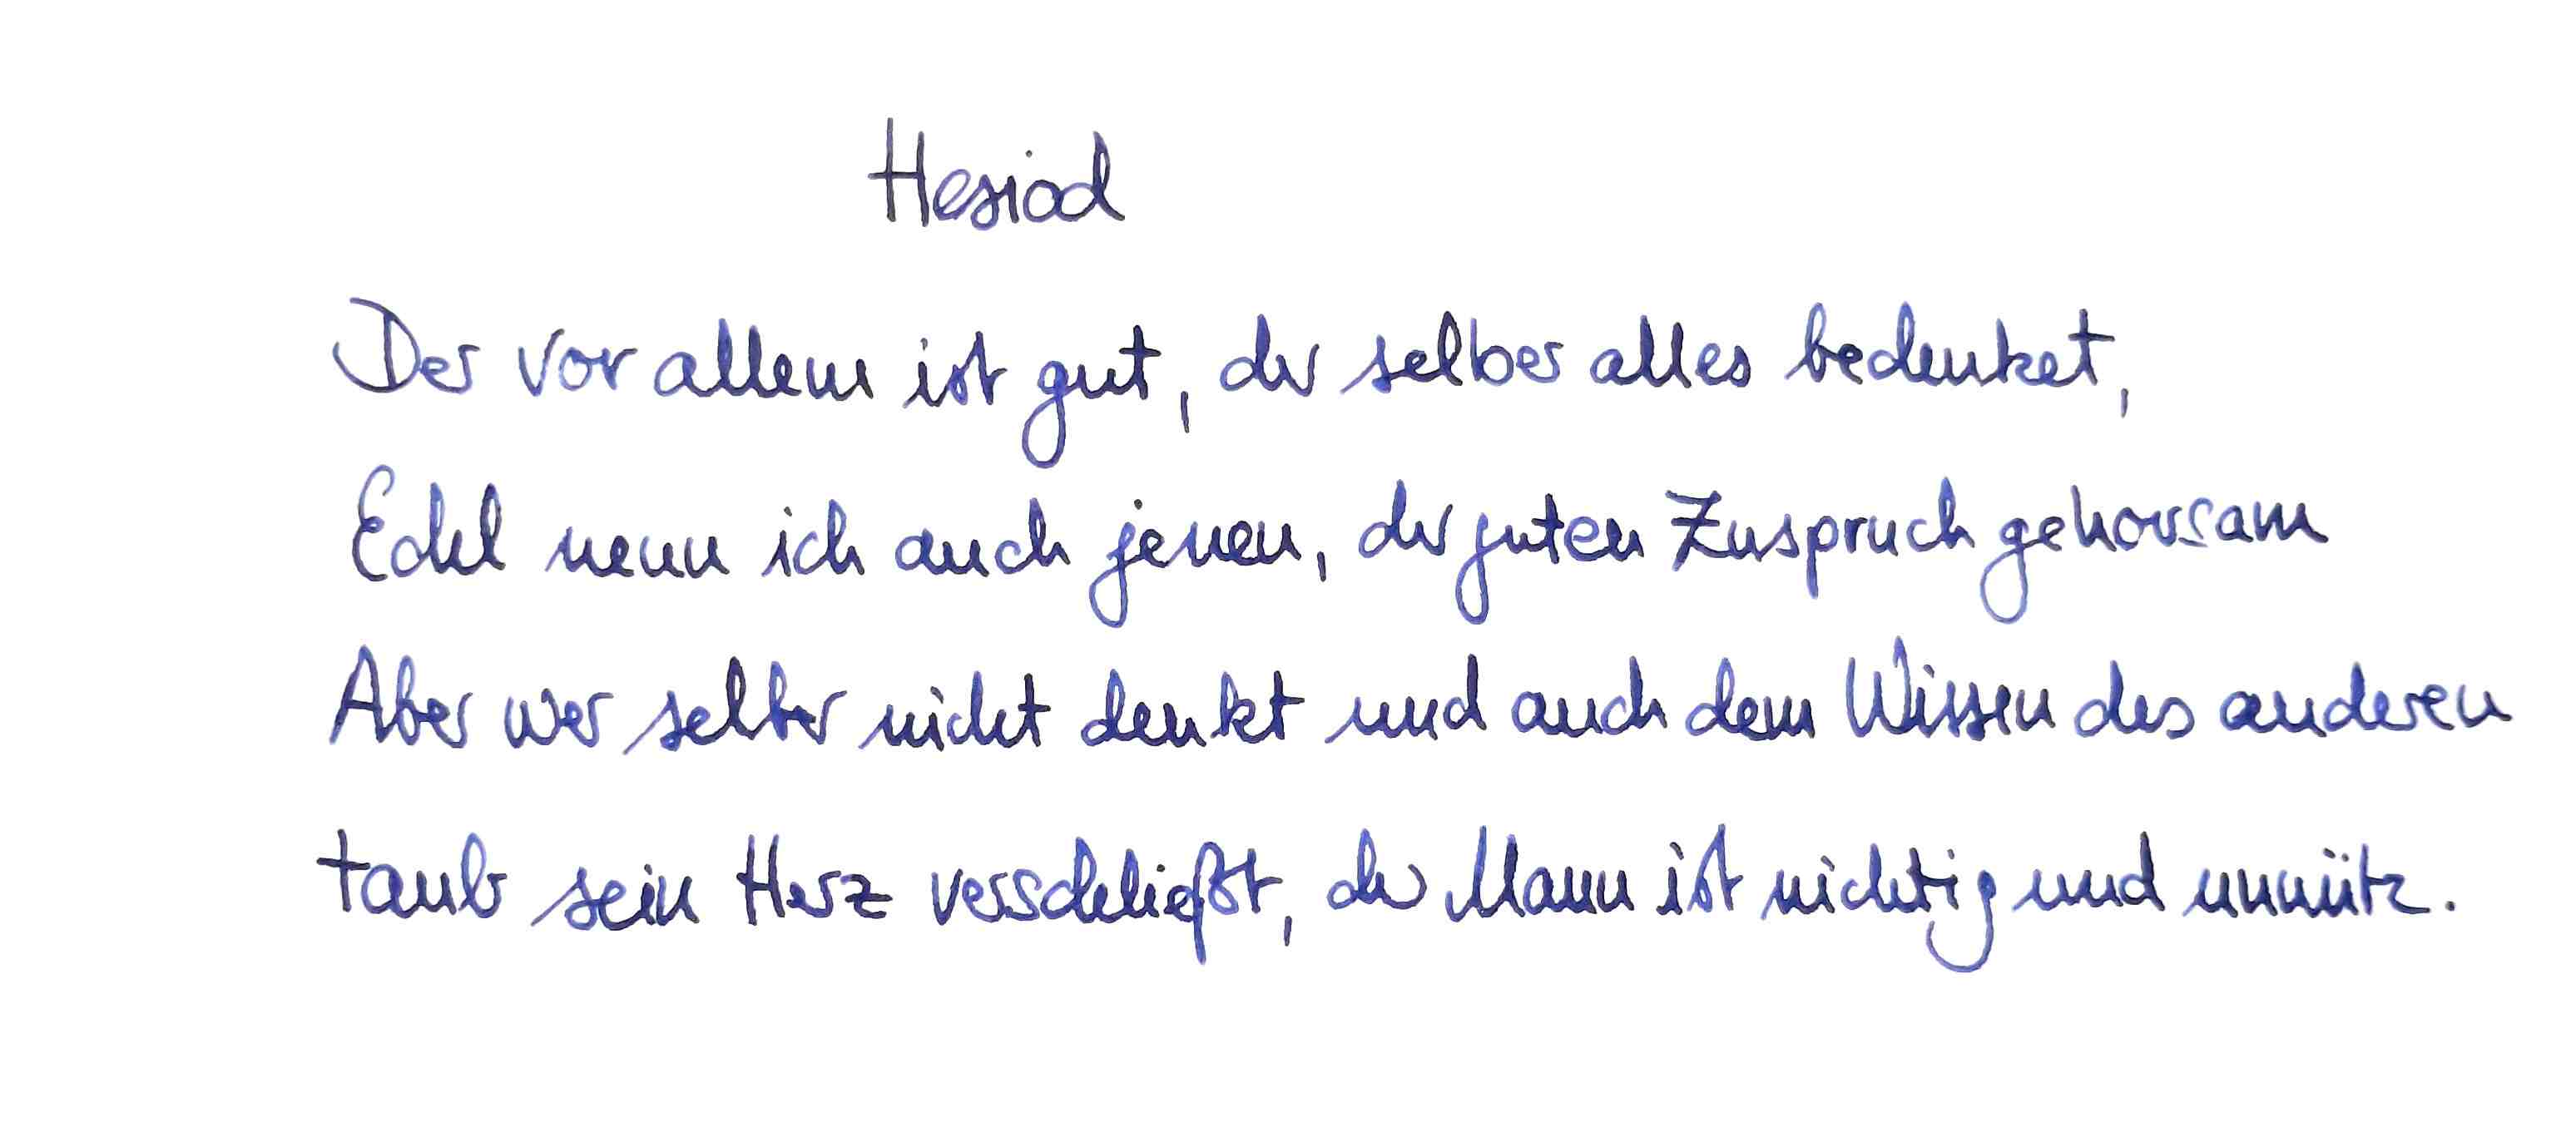 Hesiod
Der vor allem ist gut, der selber alles bedenket,
Edel nenn ich auch jenen, der guten Zuspruch gehorsam
Aber wer selber nicht denkt und auch dem Wissen des anderen
taub sein Herz verschließt, der Mann ist nichtig und unnütz.